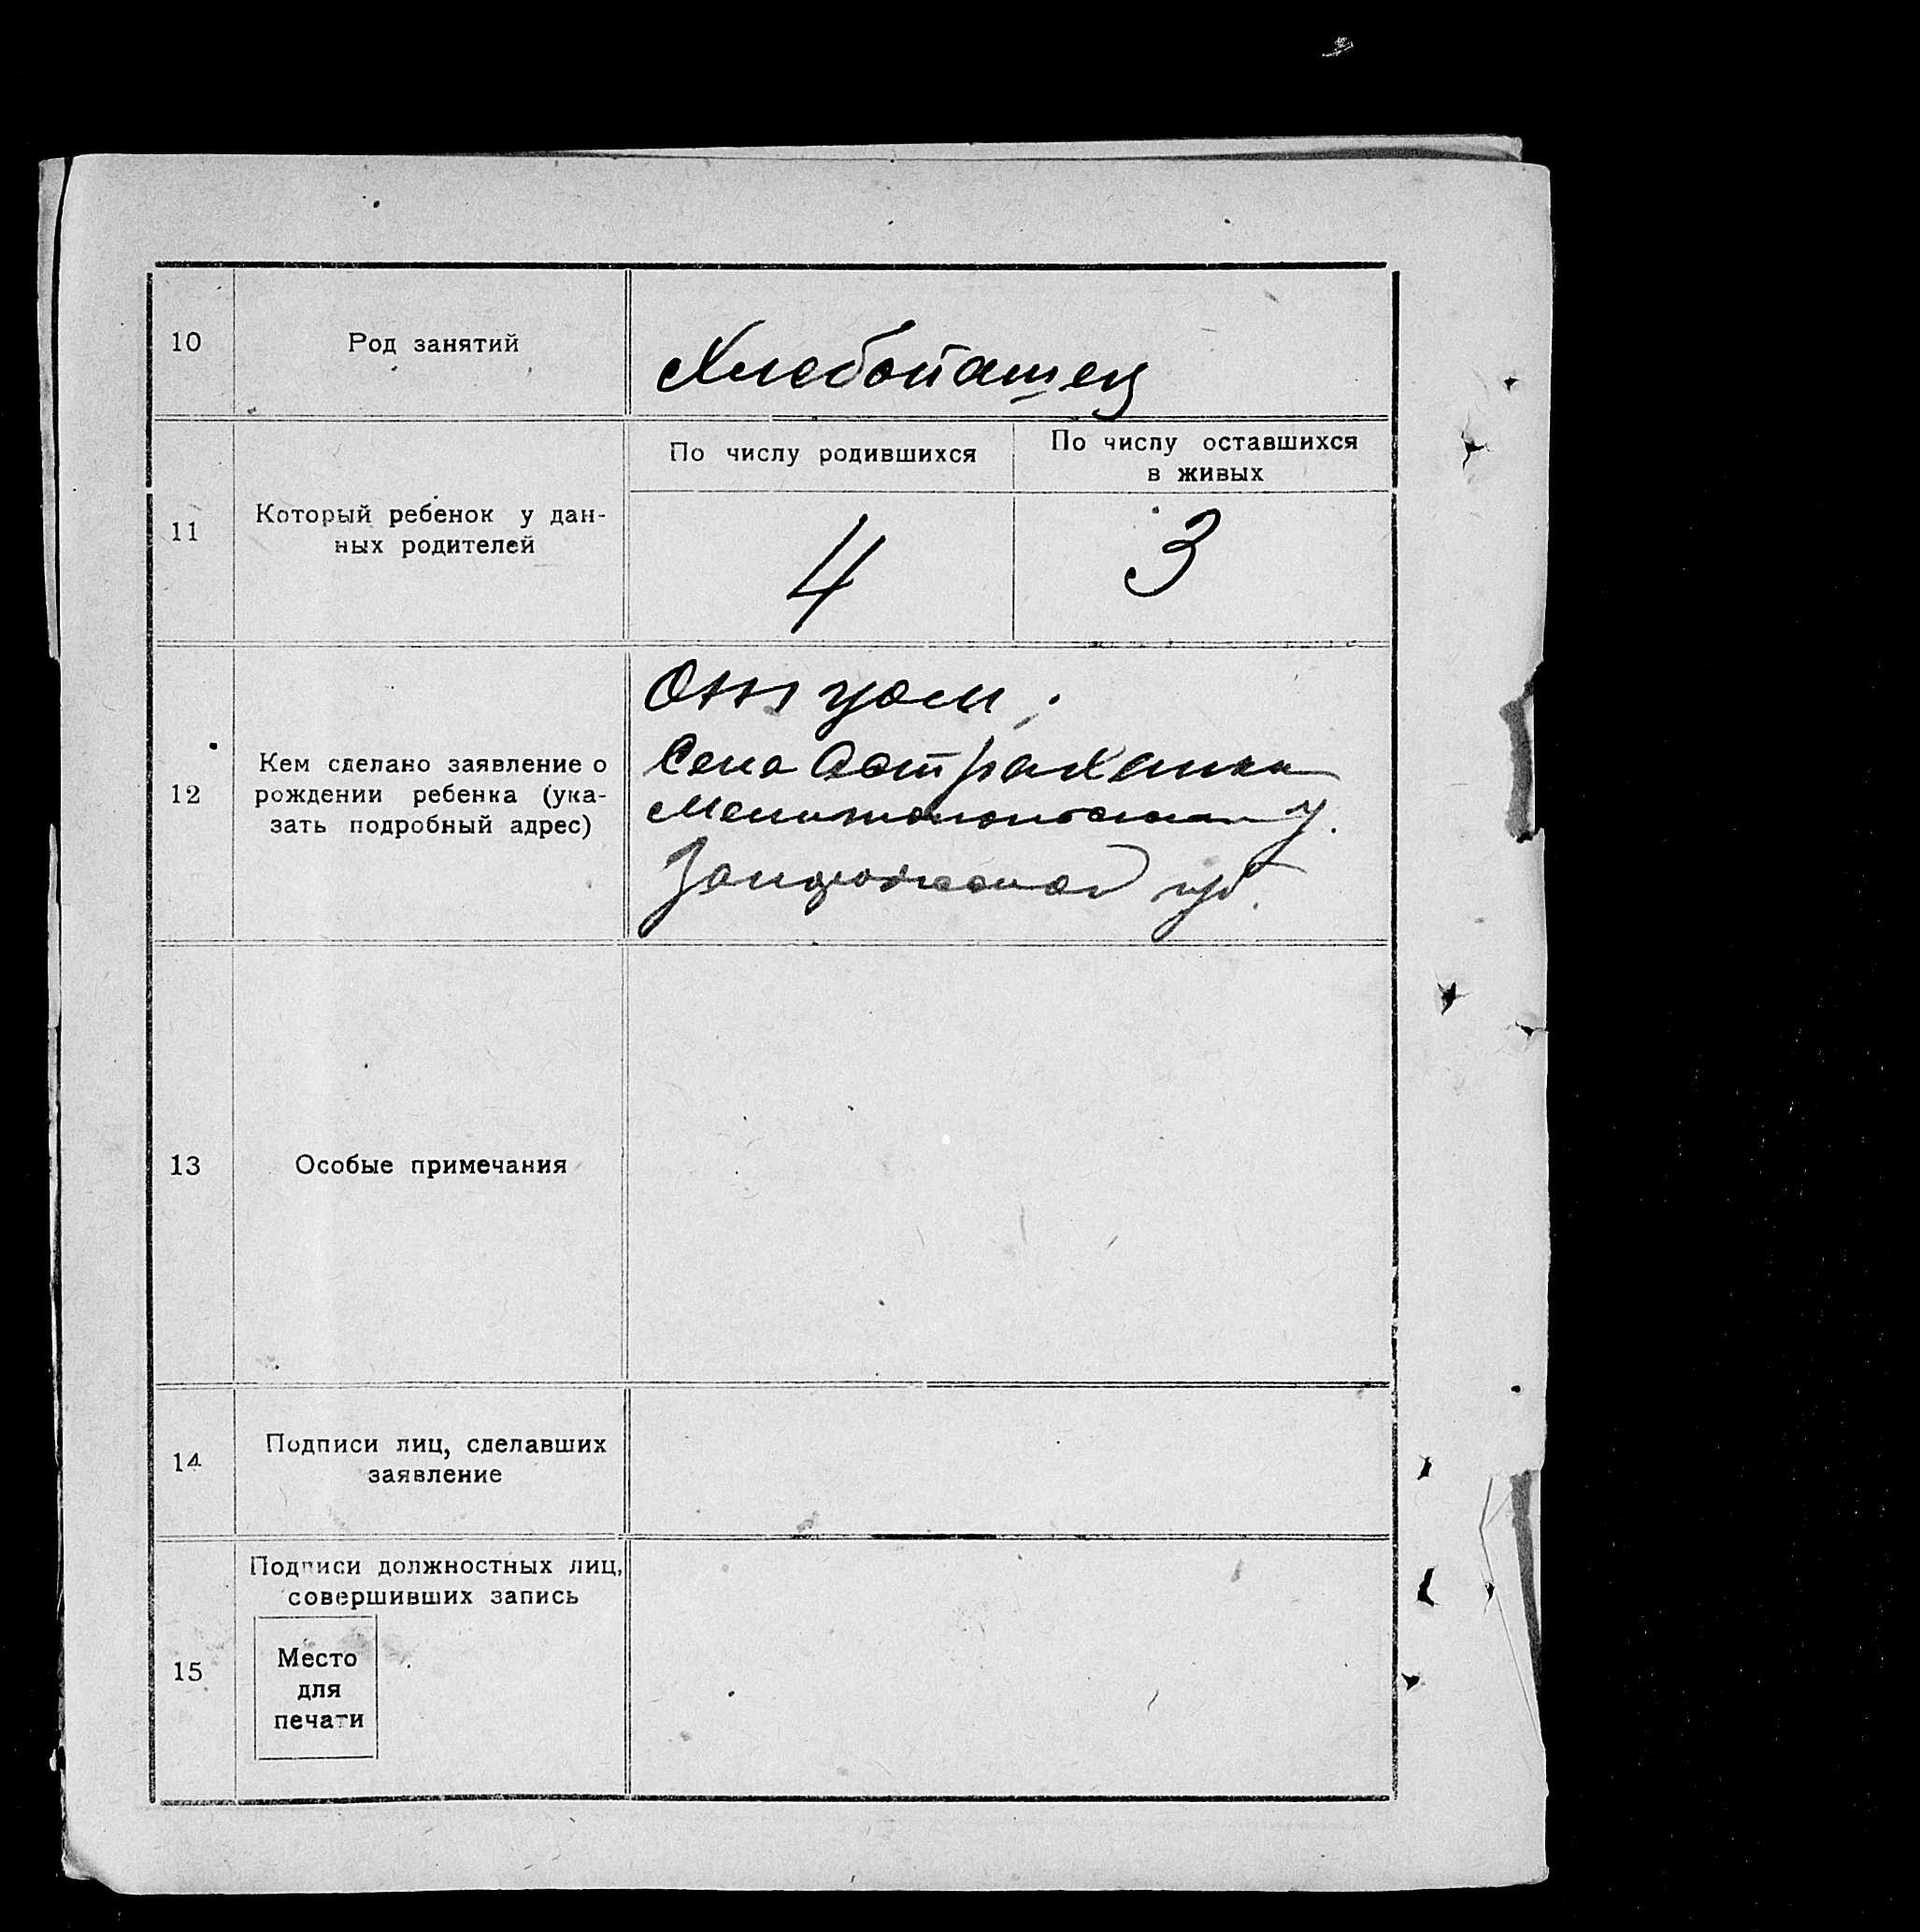 10
Род занятий
Хлебопашец
11
Который ребенок у дан-
ных родителей
По числу родившихся
По числу оставшихся
в живых
4
3
12
Кем сделано заявление о
рождении ребенка (ука-
зать подробный адрес)
Отцом.
Села Астраханки
Мелитопольского у.
Запорожской губ.
13
Особые примечания
14
Подписи лиц, сделавших
заявление
15
Подписи должностных лиц,
совершивших запись
Место
для
печати